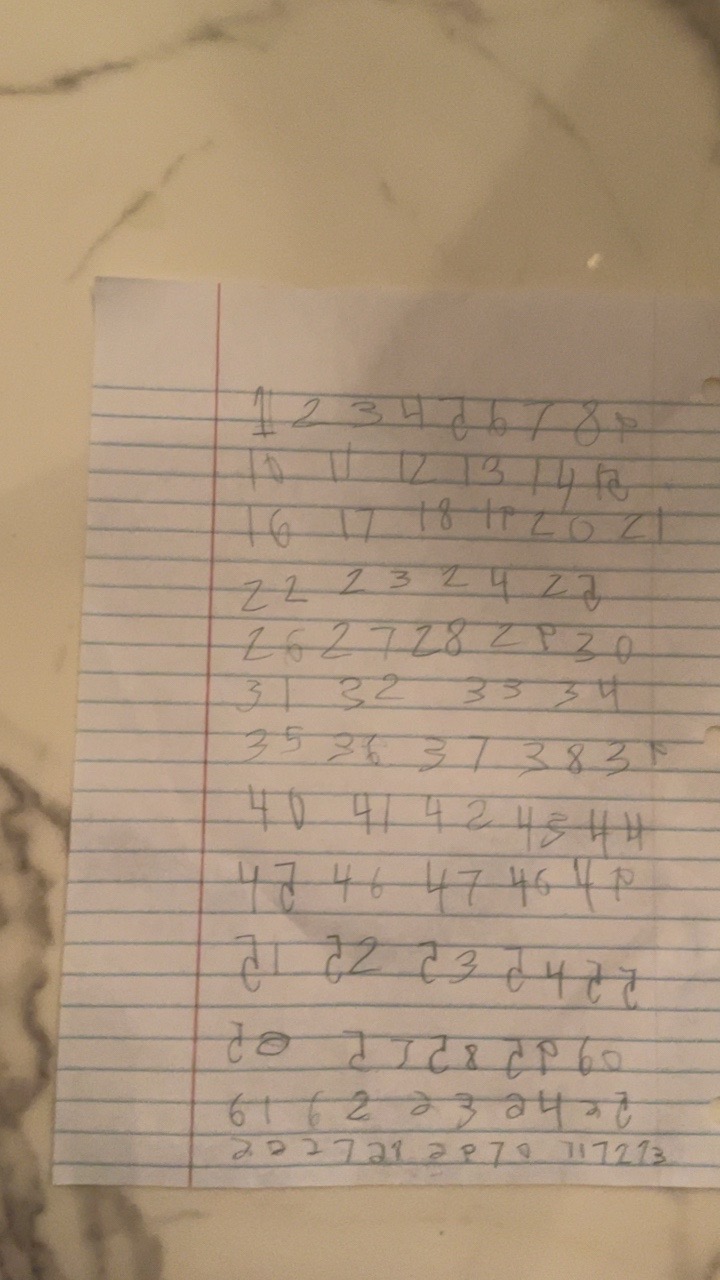 1 2 3 4 5 6 7 8 9
10 11 12 13 14 15
16 17 18 19 20 21
22 23 24 25
26 27 28 29 30
31 32 33 34
35 36 37 38 39
40 41 42 43 44
45 46 47 46 49
51 52 53 54 55
50 57 58 59 60
61 62 23 24 25
22 27 29 29 70 71 72 73